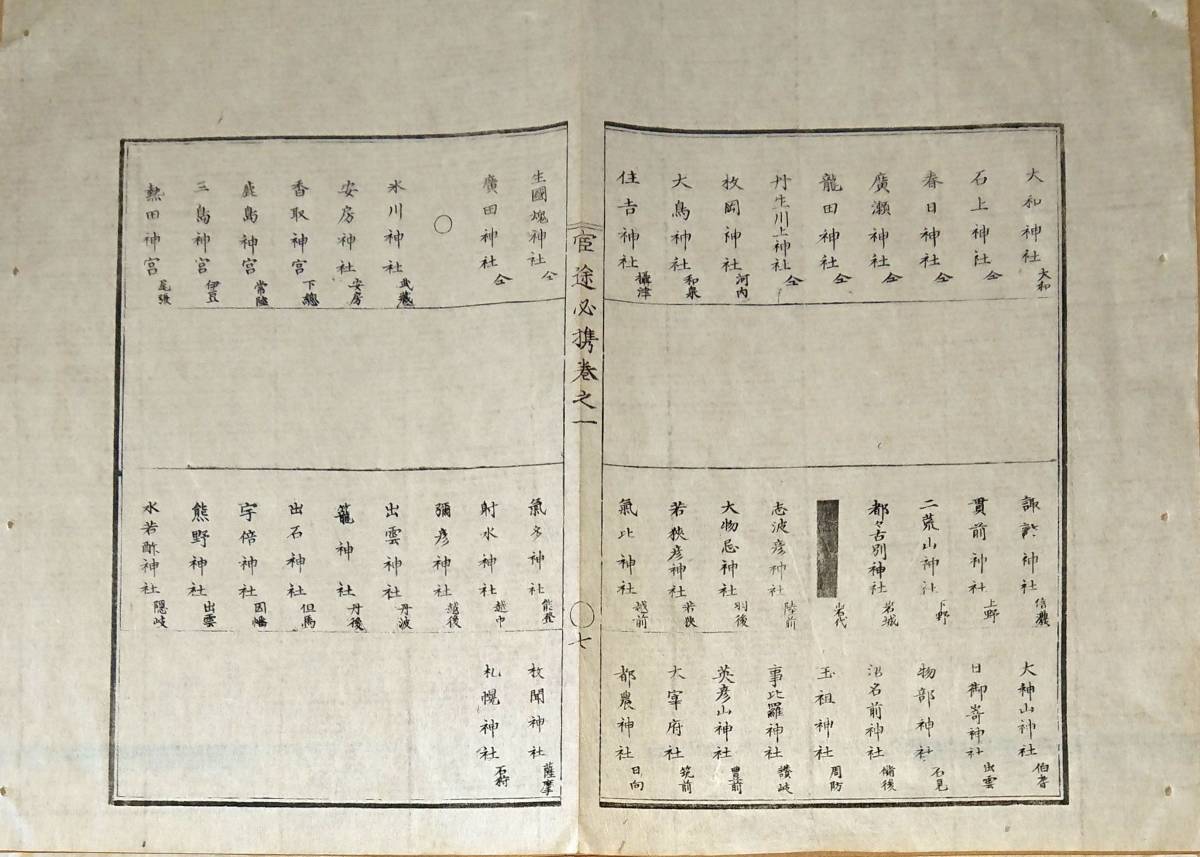 大和神社 大和
石上神社 仝
春日神社 仝
廣瀬神社 仝
龍田神社 仝
丹生川上神社 仝
枚岡神社 河内
大鳥神社 和泉
住吉神社 攝津
諏訪神社 信濃
貫前神社 上野
二荒山神社 下野
都々古別神社 岩城
岩代
志波彦神社 陸前
大物忌神社 羽後
若狹彦神社 若狹
氣比神社 越前
大神山神社 伯耆
日御崎神社 出雲
物部神社 石見
沼名前神社 備後
玉祖神社 周防
事比羅神社 讚岐
英彦山神社 豊前
大宰府社 筑前
都農神社 日向
官途必携卷之一
七
生國魂神社 仝
廣田神社 仝
〇
氷川神社 武藏
安房神社 安房
香取神宮 下總
鹿島神宮 常陸
三島神宮 伊豆
熱田神宮 尾張
氣多神社 能登
射水神社 越中
彌彦神社 越後
出雲神社 丹波
籠神社 丹後
出石神社 但馬
宇倍神社 因幡
熊野神社 出雲
水若酢神社 隠岐
枚聞神社 薩摩
札幌神社 石狩